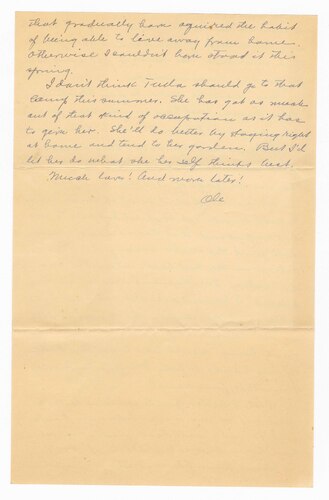 that gradually have aquired the habit
of being able to live away from home.
Otherwise I couldn't have stood it this
spring.
I don't think Tula should go to that
camp this summer. She has got as much
out of that kind of occupation as it has
to give her. She'll do better by staying right
at home and tend to her garden. But I'd
let her do what she her self thinks best.
Much love! And more later!
Ole